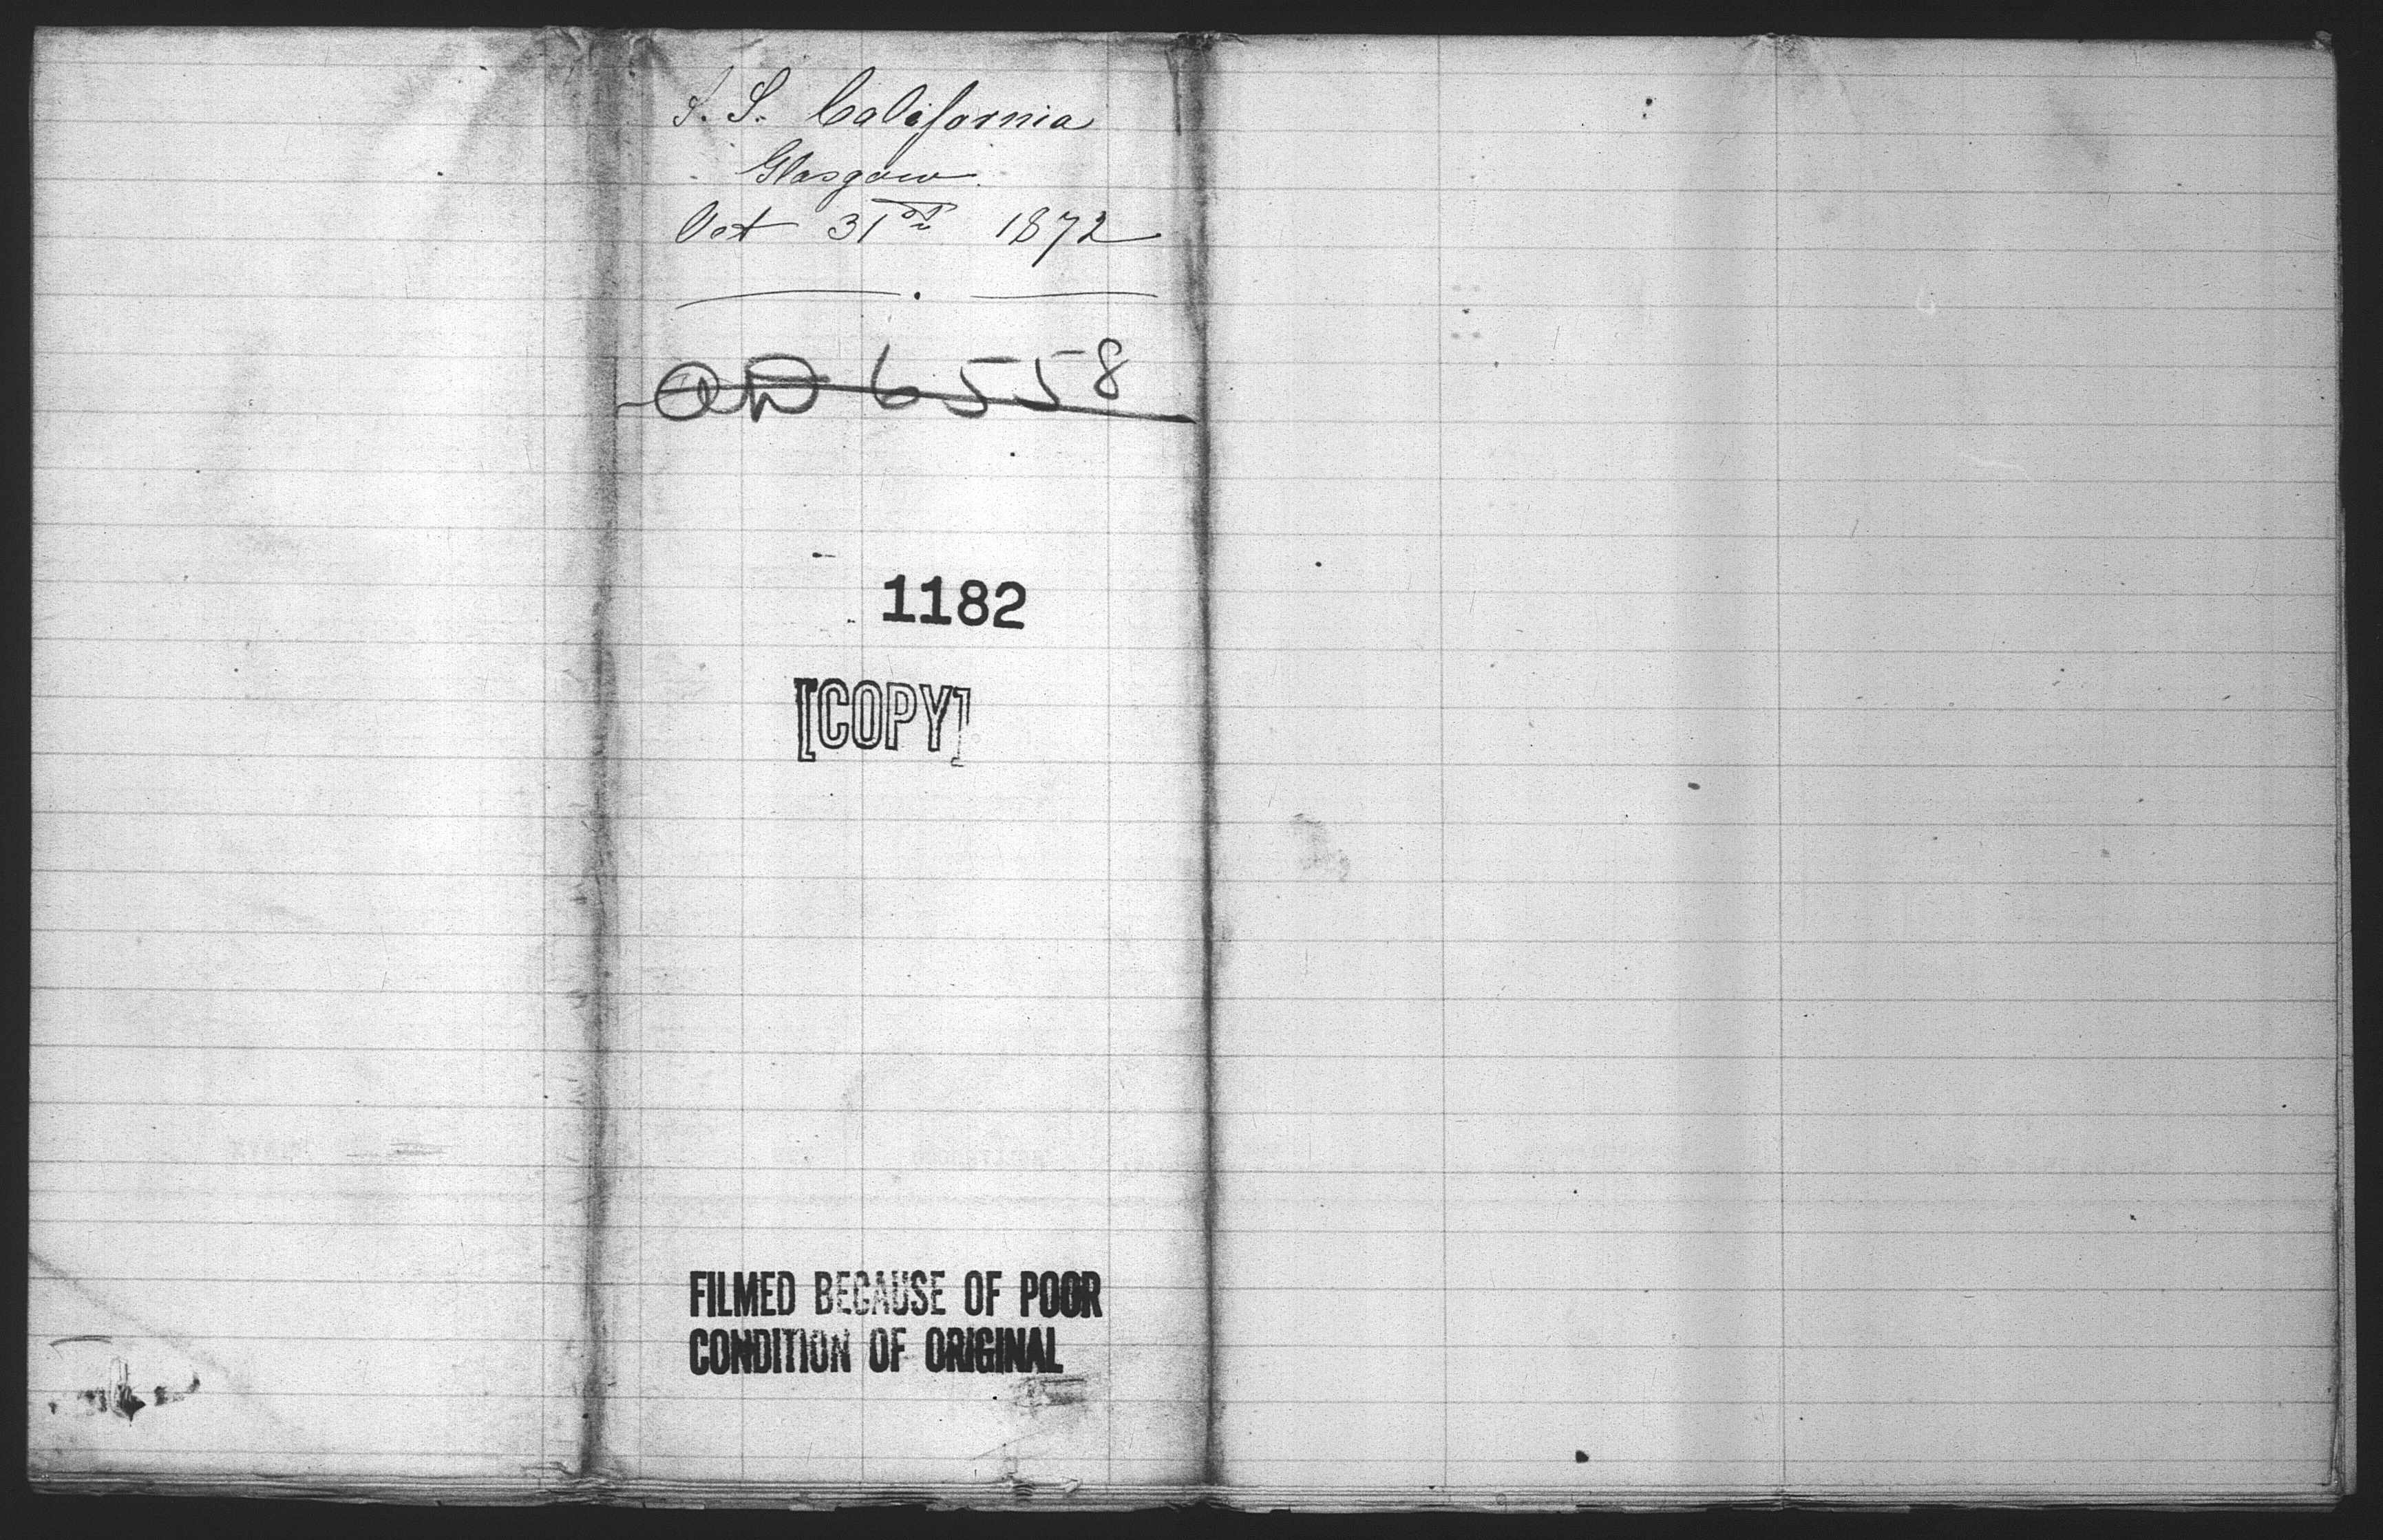 S. S. California
Glasgow
Oct 31st 1872
6558
1182
[COPY]
FILMED BECAUSE OF POOR
CONDITION OF ORIGINAL